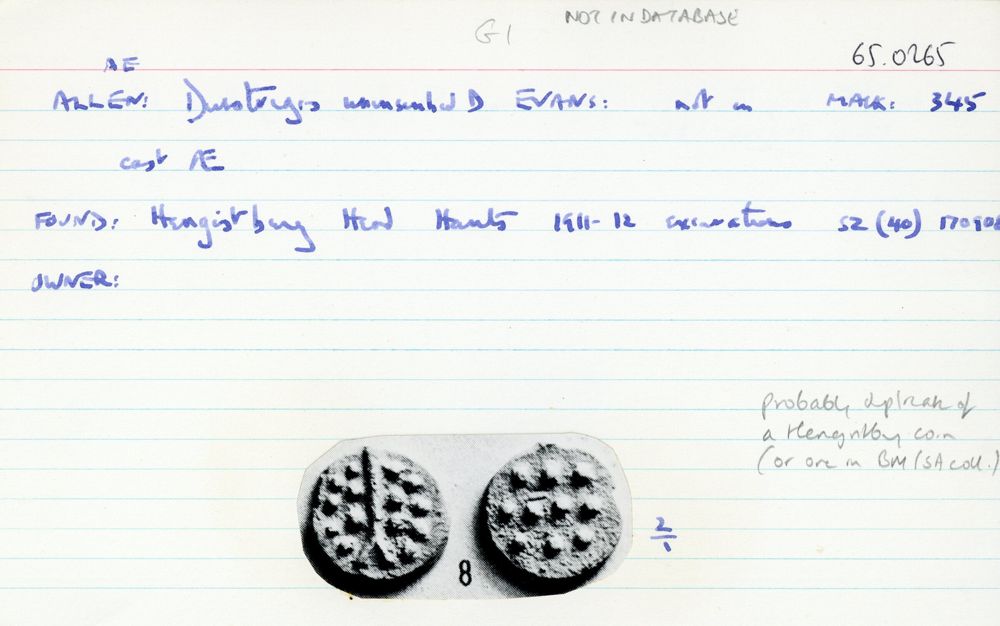 G1 NOT IN DATABASE
65.0265
AE
ALLEN: Durotriges uninscribed D EVANS: not in MACK: 345
cast Æ
FOUND: Hengistbury Head Hants 1911-12 excavations SZ (40) 170908
OWNER:
probably duplicate of
a Hengistbury coin
(or one in BM/SA coll.)
2/1
8